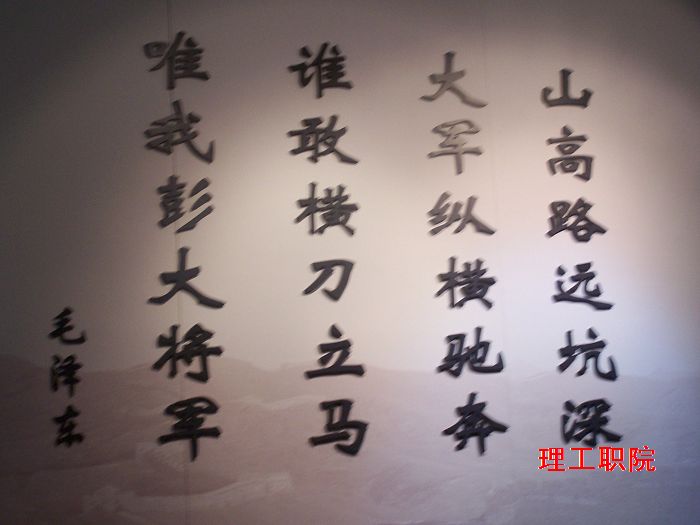 山高路远坑深
大军纵横驰奔
谁敢横刀立马
唯我彭大将军
毛泽东
理工职院